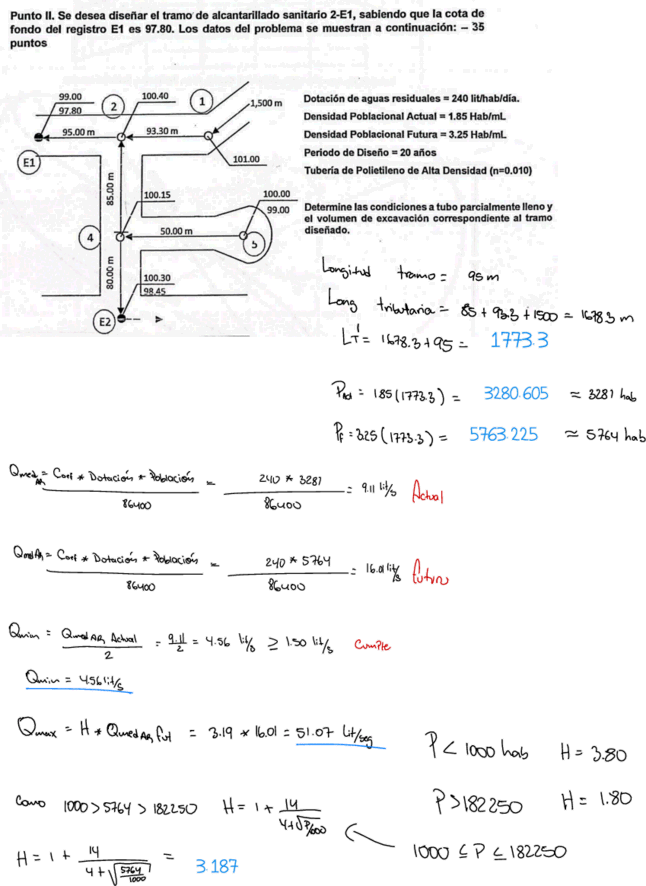 Punto II. Se desea diseñar el tramo de alcantarillado sanitario 2-E1, sabiendo que la cota de
fondo del registro E1 es 97.80. Los datos del problema se muestran a continuación: – 35
puntos
99.00
97.80
2
100.40
1
1,500 m
95.00 m
93.30 m
E1
101.00
85.00 m
100.15
100.00
99.00
4
50.00 m
5
80.00 m
100.30
98.45
E2
Dotación de aguas residuales = 240 lit/hab/día.
Densidad Poblacional Actual = 1.85 Hab/mL
Densidad Poblacional Futura = 3.25 Hab/mL
Periodo de Diseño = 20 años
Tubería de Polietileno de Alta Densidad (n=0.010)
Determine las condiciones a tubo parcialmente lleno y
el volumen de excavación correspondiente al tramo
diseñado.
Longitud tramo = 95 m
Long tributaria = 85 + 93.3 + 1500 = 1678.3 m
LT = 1678.3 + 95 = 1773.3
PAct = 1.85 (1773.3) = 3280.605 ≈ 3281 hab
PF = 3.25 (1773.3) = 5763.225 ≈ 5764 hab
QmedAR = Coef * Dotación * Población / 86400 = 240 * 3281 / 86400 = 9.11 lit/s Actual
QmedAR = Coef * Dotación * Población / 86400 = 240 * 5764 / 86400 = 16.01 lit/s futuro
Qmin = QmedAR Actual / 2 = 9.11 / 2 = 4.56 lit/s ≥ 1.50 lit/s Cumple
Qmin = 4.56 lit/s
Qmax = H * QmedAR fut = 3.19 * 16.01 = 51.07 Lit/seg
P < 1000 hab H = 3.80
Como 1000 > 5764 > 182250 H = 1 + 14 / 4+√P/1000
P > 182250 H = 1.80
H = 1 + 14 / 4 + √5764/1000 = 3.187
1000 ≤ P ≤ 182250